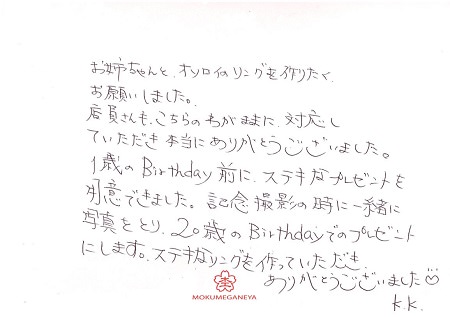 お姉ちゃんと、オソロイのリングを作りたく、
お願いしました。
店員さんも、こちらのわがままに、対応し
ていただき本当にありがとうございました。
1歳のBirthday前に、ステキなプレゼントを
用意できました。記念撮影の時に一緒に
写真をとり、20歳のBirthdayでのプレゼント
にします。ステキなリングを作っていただき、
ありがとうございました
K.K.
MOKUMEGANEYA